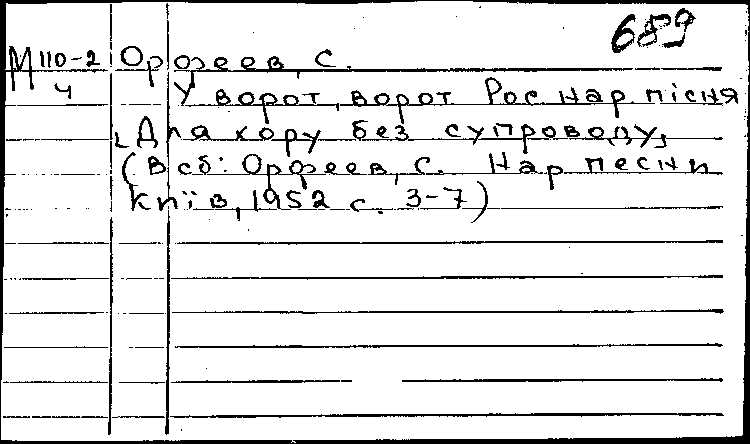 689
М 110-2 Орфеев, С.
4 У ворот, ворот Рос нар пісня
[Для хору без супроводу]
(В сб: Орфеев, С. Нар песни
Київ, 1952 с. 3-7)